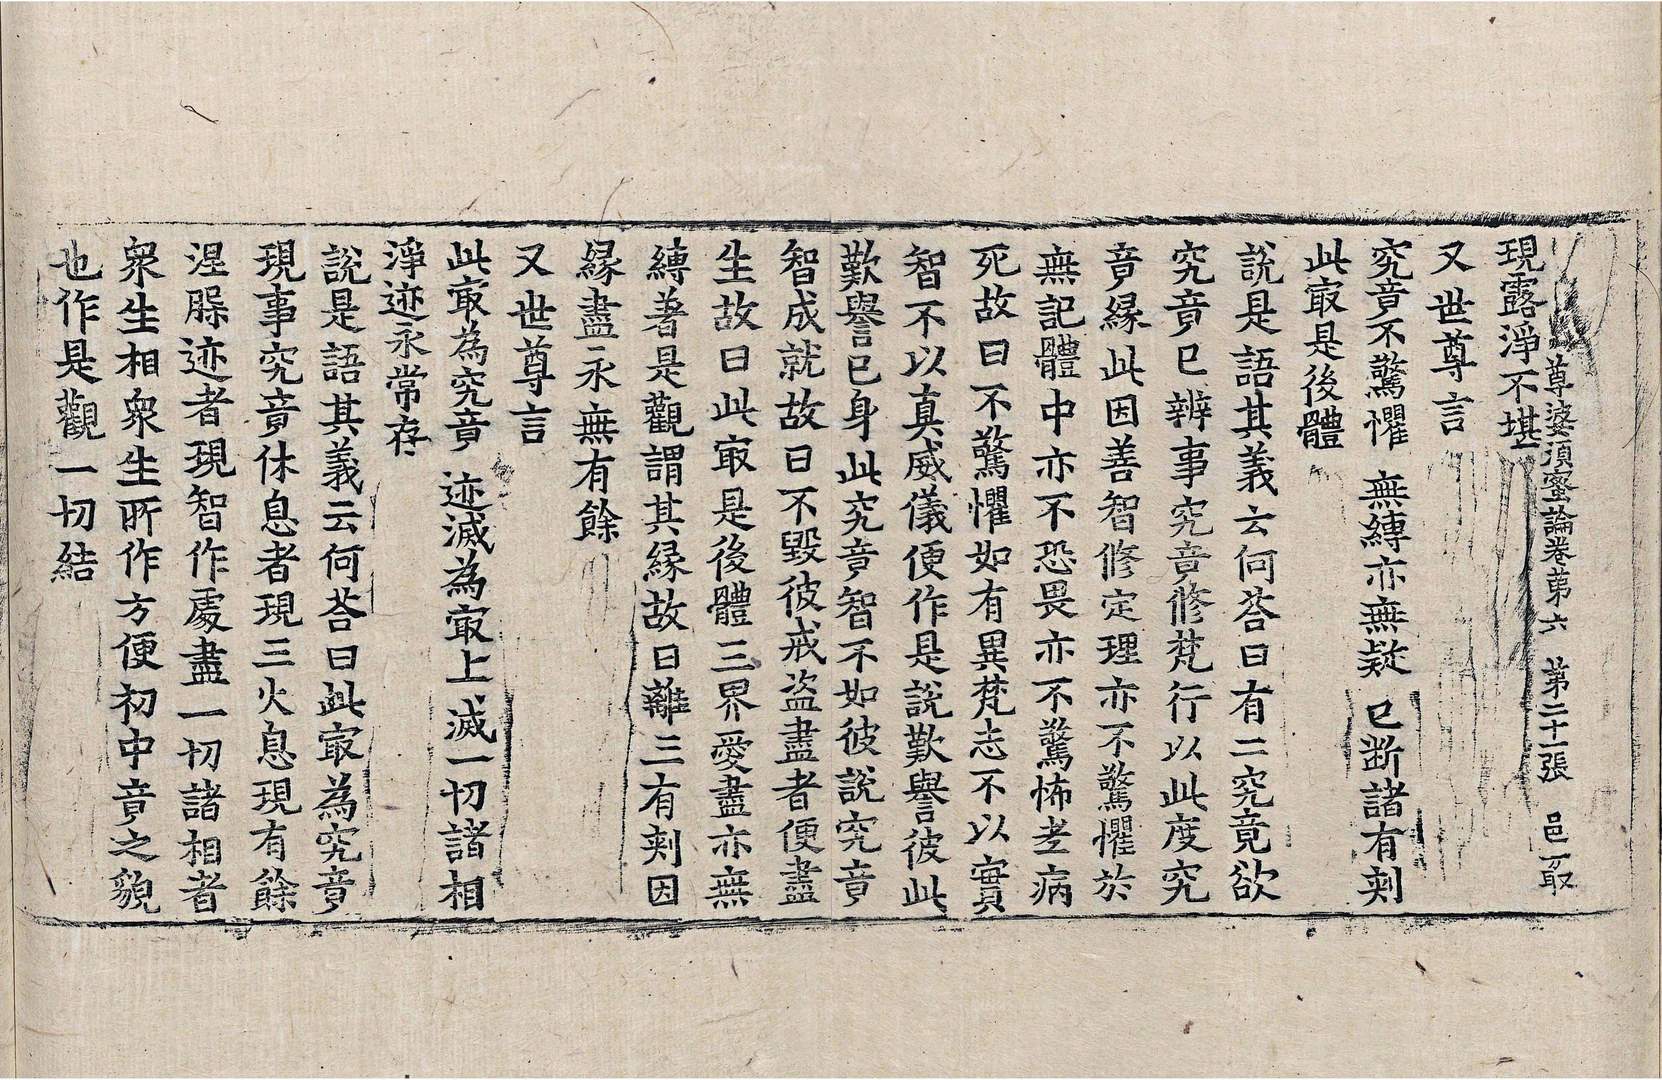 尊婆須蜜論卷第六　第二十一張　邑一取
現露淨不堪
又世尊言
究竟不驚懼　無縛亦無疑　已断諸有刾
此㝡是後體
說是語其義云何荅曰有二究竟欲
究竟已辨事究竟修梵行以此度究
竟緣此因善智修定理亦不驚懼於
無記體中亦不恐畏亦不驚怖老病
死故曰不驚懼如有異梵志不以實
智不以真威儀便作是說歎譽彼此
歎譽已身此究竟智不如彼說究竟
智成就故曰不毀彼戒盗盡者便盡
生故曰此㝡是後體三界愛盡亦無
縛著是觀謂其緣故曰離三有刾因
緣盡永無有餘
又世尊言
此㝡為究竟　迹滅為㝡上　滅一切諸相
淨迹永常存
說是語其義云何荅曰此㝡為究竟
現事究竟休息者現三火息現有餘
涅槃迹者現智作處盡一切諸相者
衆生相衆生所作方便初中竟之貌
也作是觀一切結